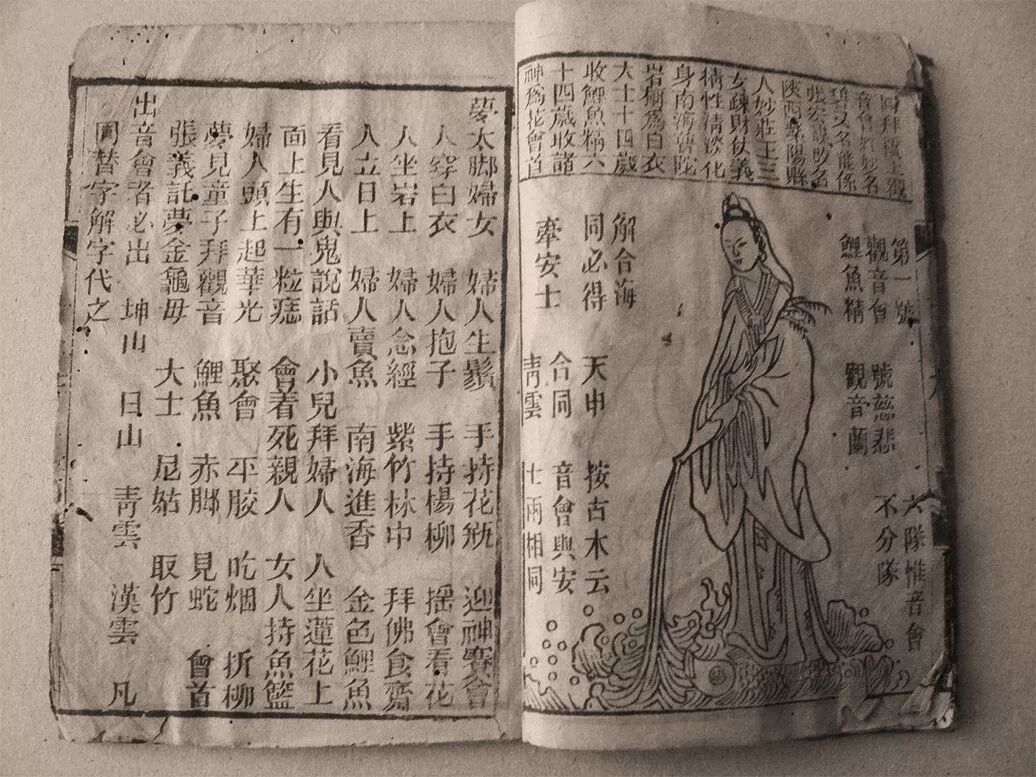 音會姓妙名
人妙莊王三
女疎財仗義
精性清淡化
身南海普陀
大士十四歲
收鯉魚精六
十四歲收諸
神爲花會首
第一號
觀音會
鯉魚精
號慈悲
觀音蘭
大隊惟音會
不分隊
解合海
同必得
牽安士
天申
合同
青雲
按古木云
音會與安
士兩相同
夢太脚婦女 婦人生鬚 手持花瓶 迎神賽會
人穿白衣 婦人抱子 手持楊柳 搖會看花
人坐岩上 婦人念經 紫竹林中 拜佛食齋
人立日上 婦人賣魚 南海進香 金色鯉魚
看見人與鬼說話 小兒拜婦人 人坐蓮花上
面上生有一粒痣 會着死親人 女人持魚籃
婦人頭上起華光 聚會 平胶 吃烟 折柳
夢見童子拜觀音 鯉魚 赤脚 見蛇 會首
張義託夢金龜毋 大士 尼姑 取竹
出音會者必出 坤山 日山 青雲 漢雲 凡
圓替字解字代之